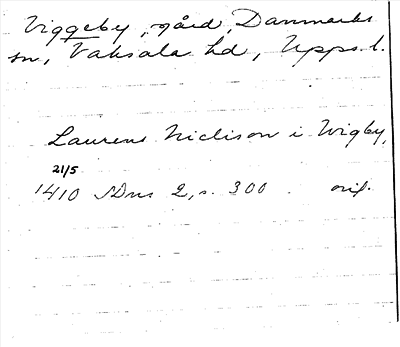 Viggeby, gård, Danmarks
sn, Vaksala hd, Upps. l.
Laurens Niclison i Wigby,
21/5
1410 SDns 2, s. 300. orig.